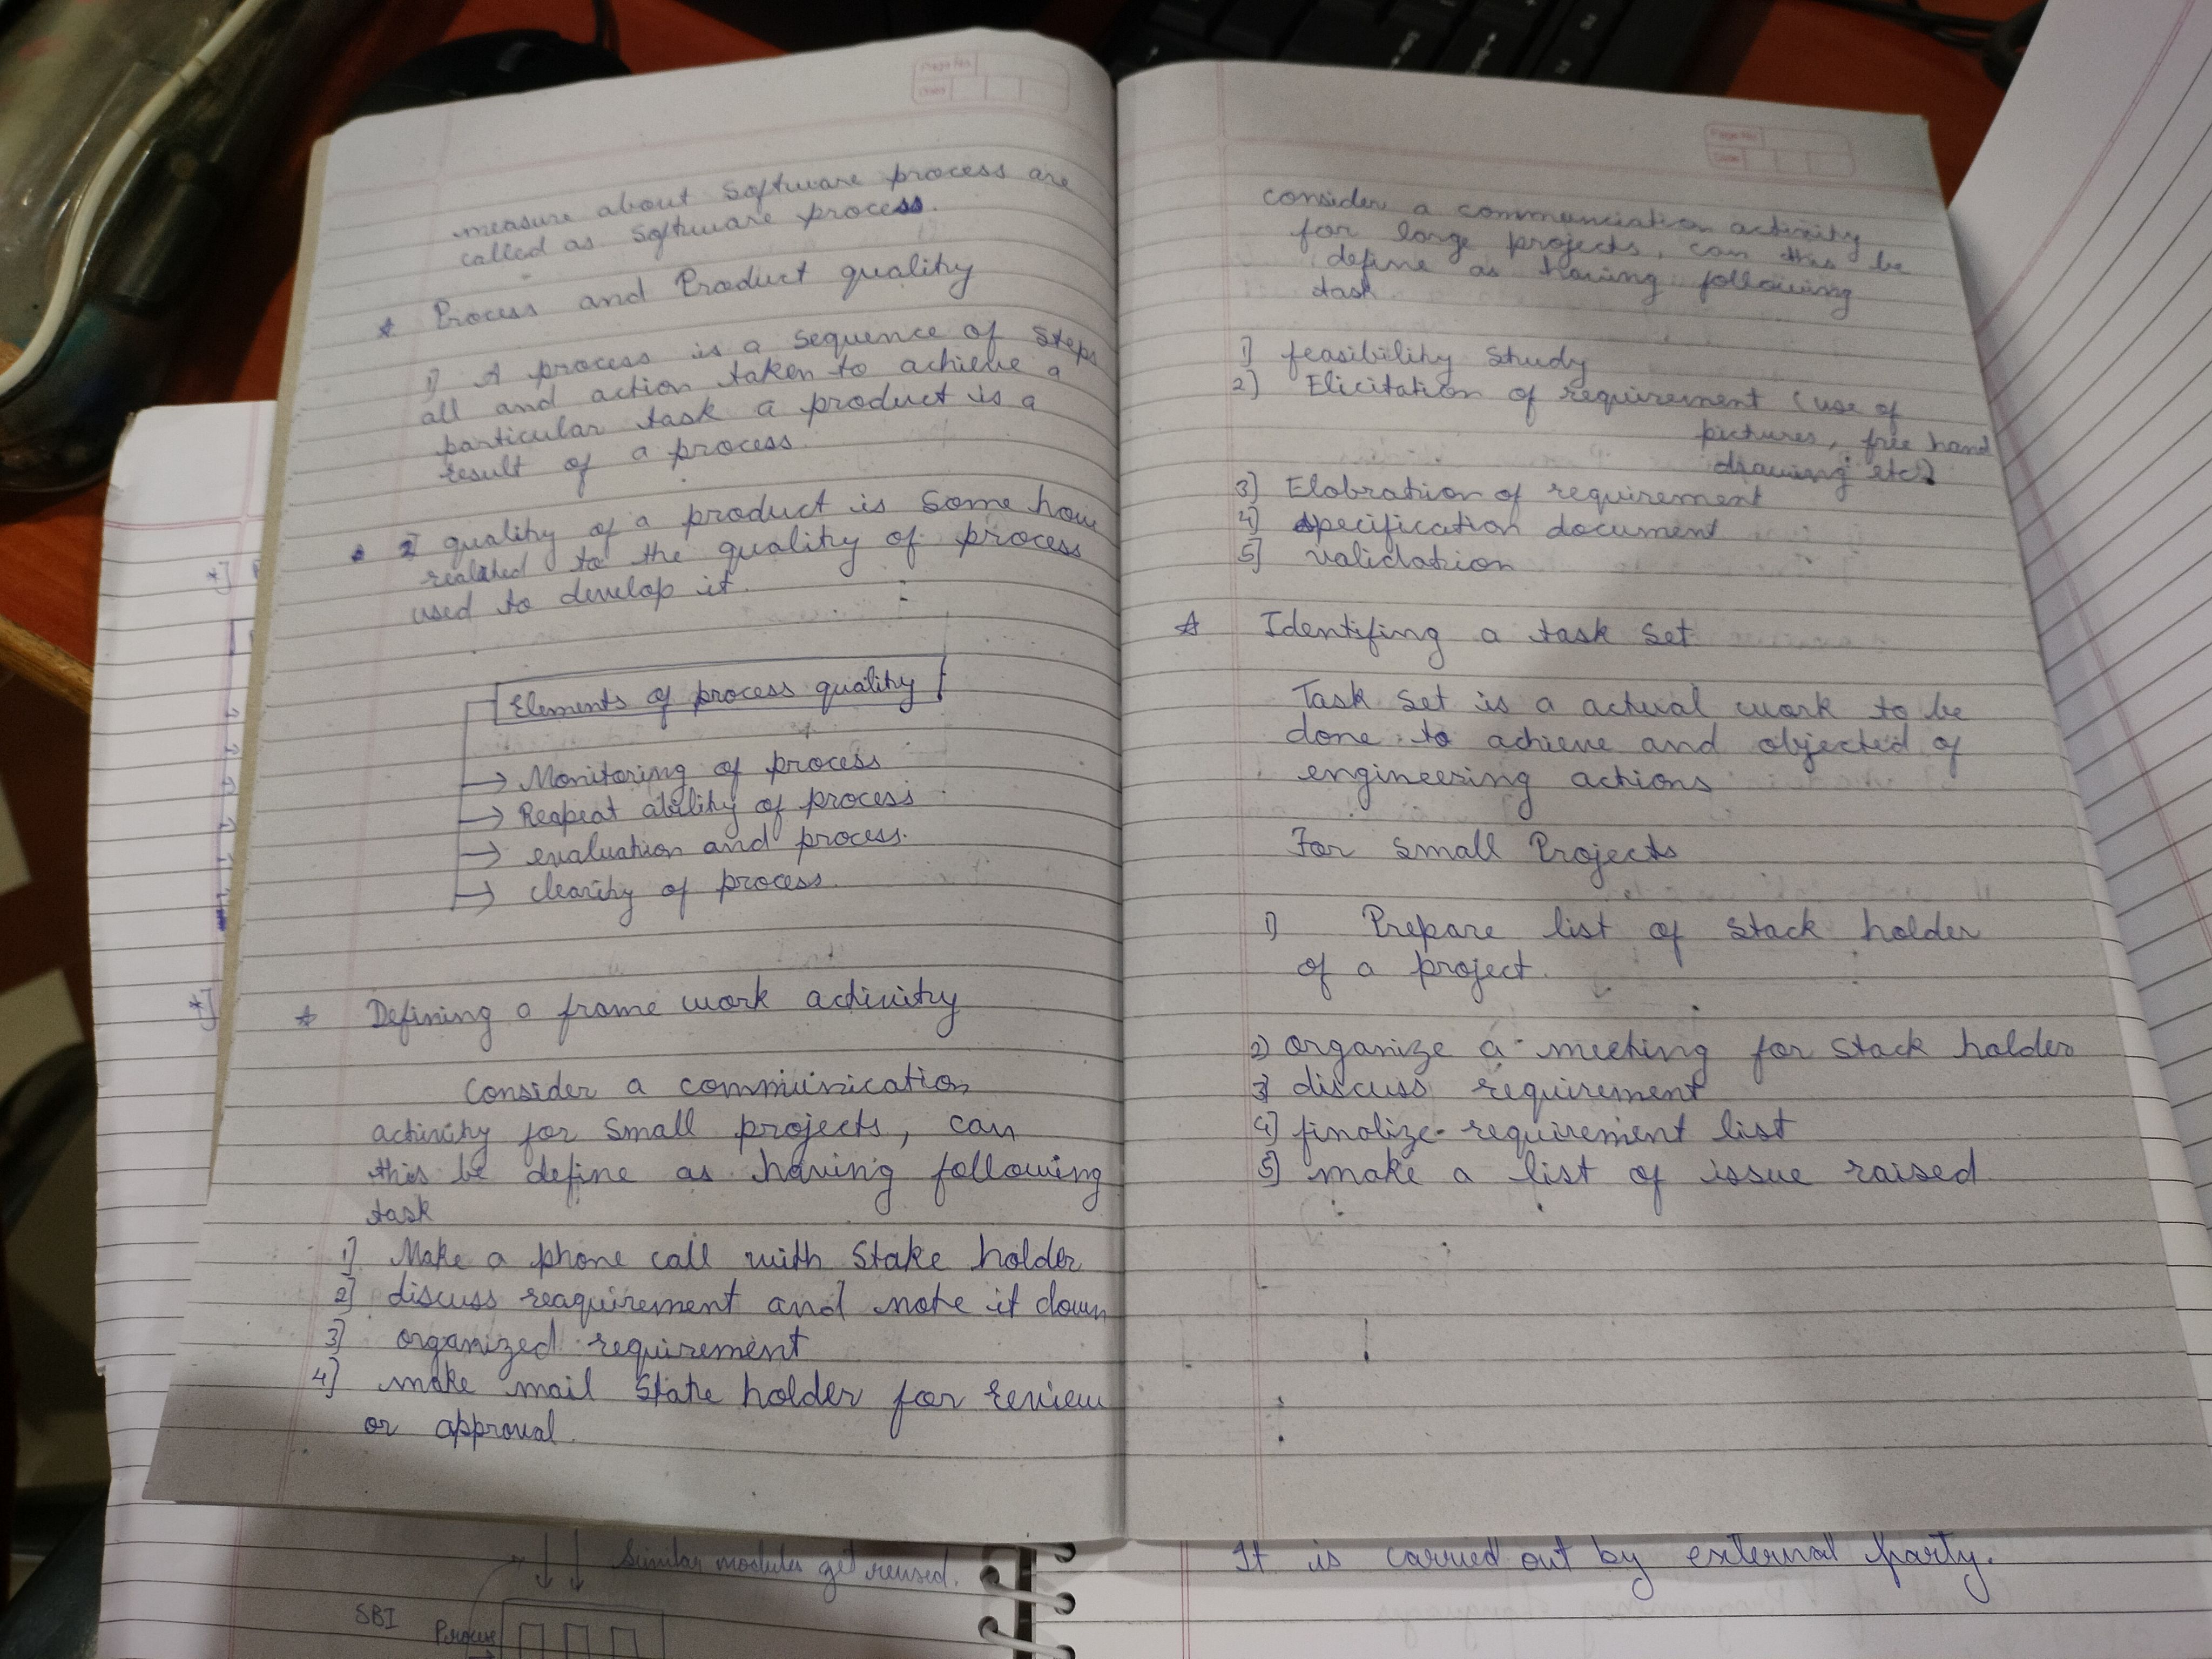 Page No.
Date
measure about software process are
called as software process.
* Process and Product quality
1) A process is a sequence of steps
all and action taken to achieve a
particular task a product is a
result of a process.
2 quality of a product is some how
realated to the quality of process
used to develop it.
Elements of process quality
→ Monitoring of process
→ Reapeat ability of process
→ evaluation and process.
→ clearity of process.
* Defining a frame work activity
Consider a communication
activity for small projects, can
this be define as having following
task
1] Make a phone call with Stake holder
2] discuss reaquirement and note it down
3] organized requirement
4] make mail State holder for review
or approval.
Page No.
Date
consider a communciation activity
for large projects, can this be
define as having following
task
1) feasibility study
2) Elicitation of requirement (use of
pictures, free hand
drawing etc)
3] Elobration of requirement
4) specification document
5] validation
* Identifing a task set
Task set is a actual work to be
done to achieve and objected of
engineering actions
For small Projects
1) Prepare list of stack holder
of a project.
2) organize a meeting for stack holder
3) discuss requirement
4) finalize requirement list
5) make a list of issue raised
Similar modules get reused.
SBI
It is carried out by external party.